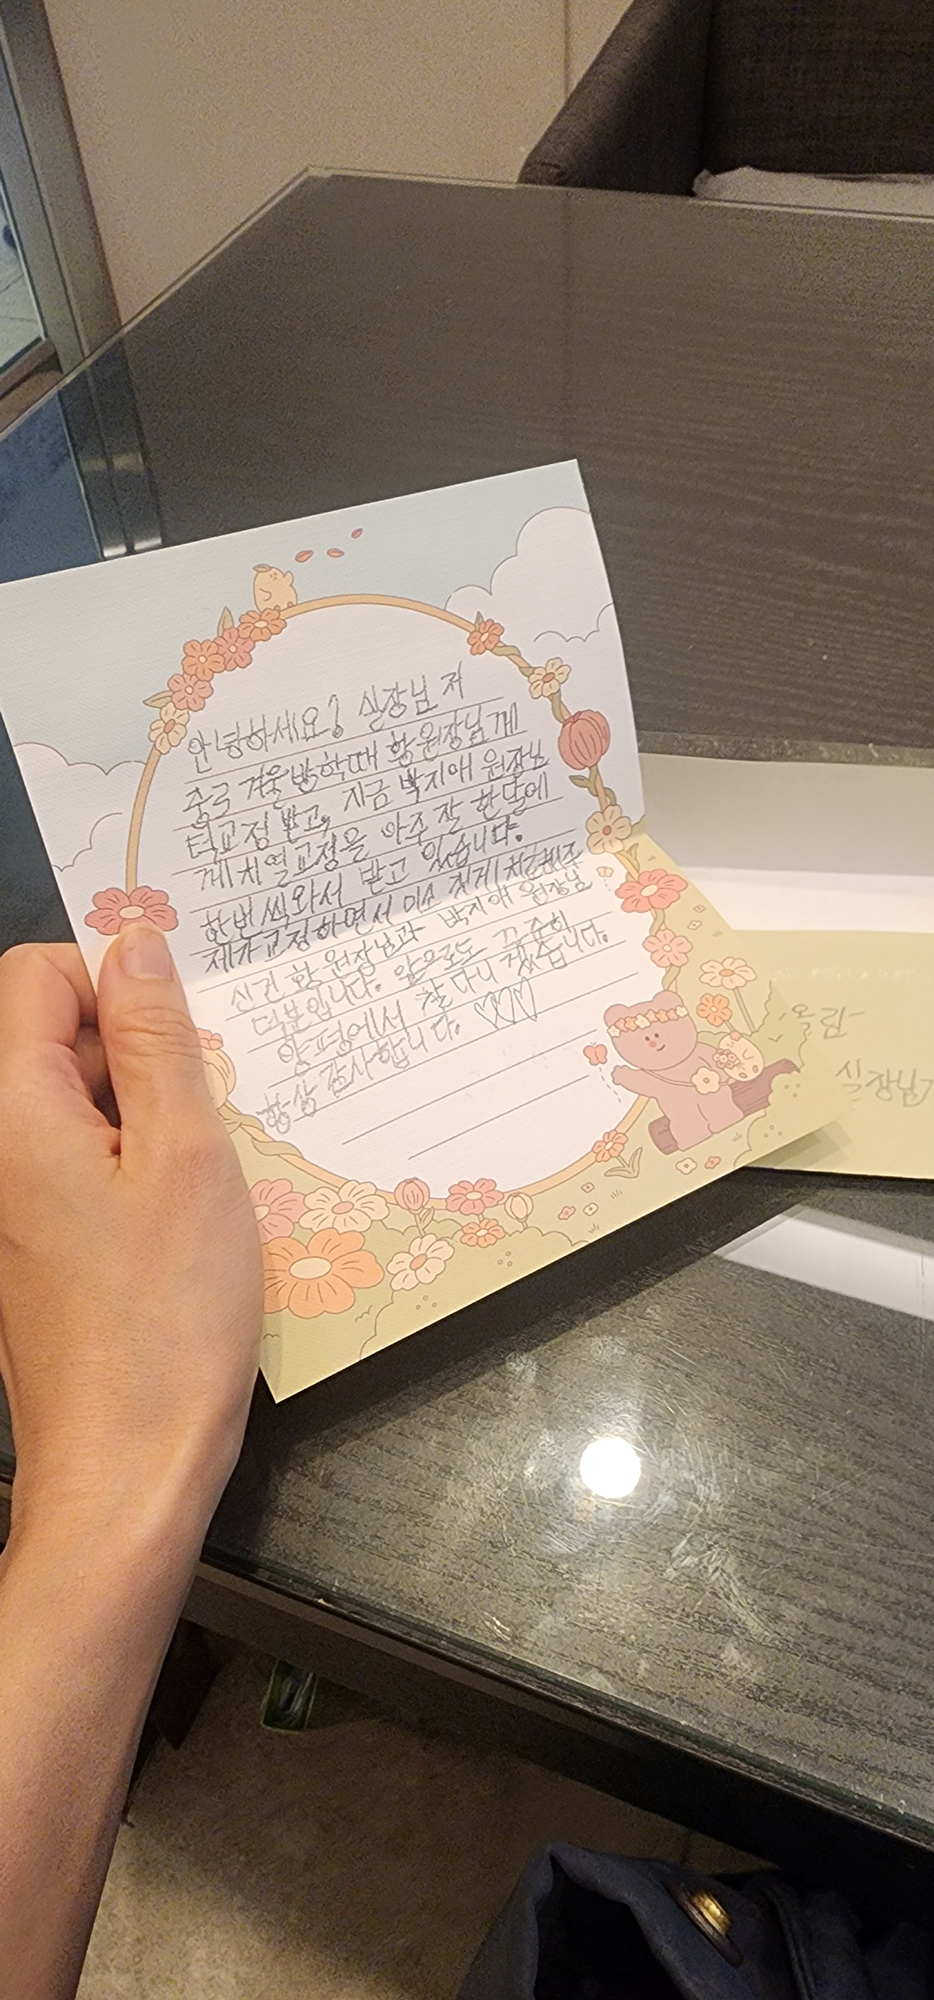 안녕하세요? 실장님 저
중3 겨울방학때 황원장님께
턱교정 받고, 지금 박지애 원장님
께 치열교정을 아주 잘 한달에
한번씩 와서 받고 있습니다.
제가 교정하면서 미소 짓게 치료해주
신건 황 원장님과 박지애 원장님
덕분입니다. 앞으로도 꾸준히
양평에서 잘 다니겠습니다.
항상 감사합니다. ♡♡♡
올림-
실장님